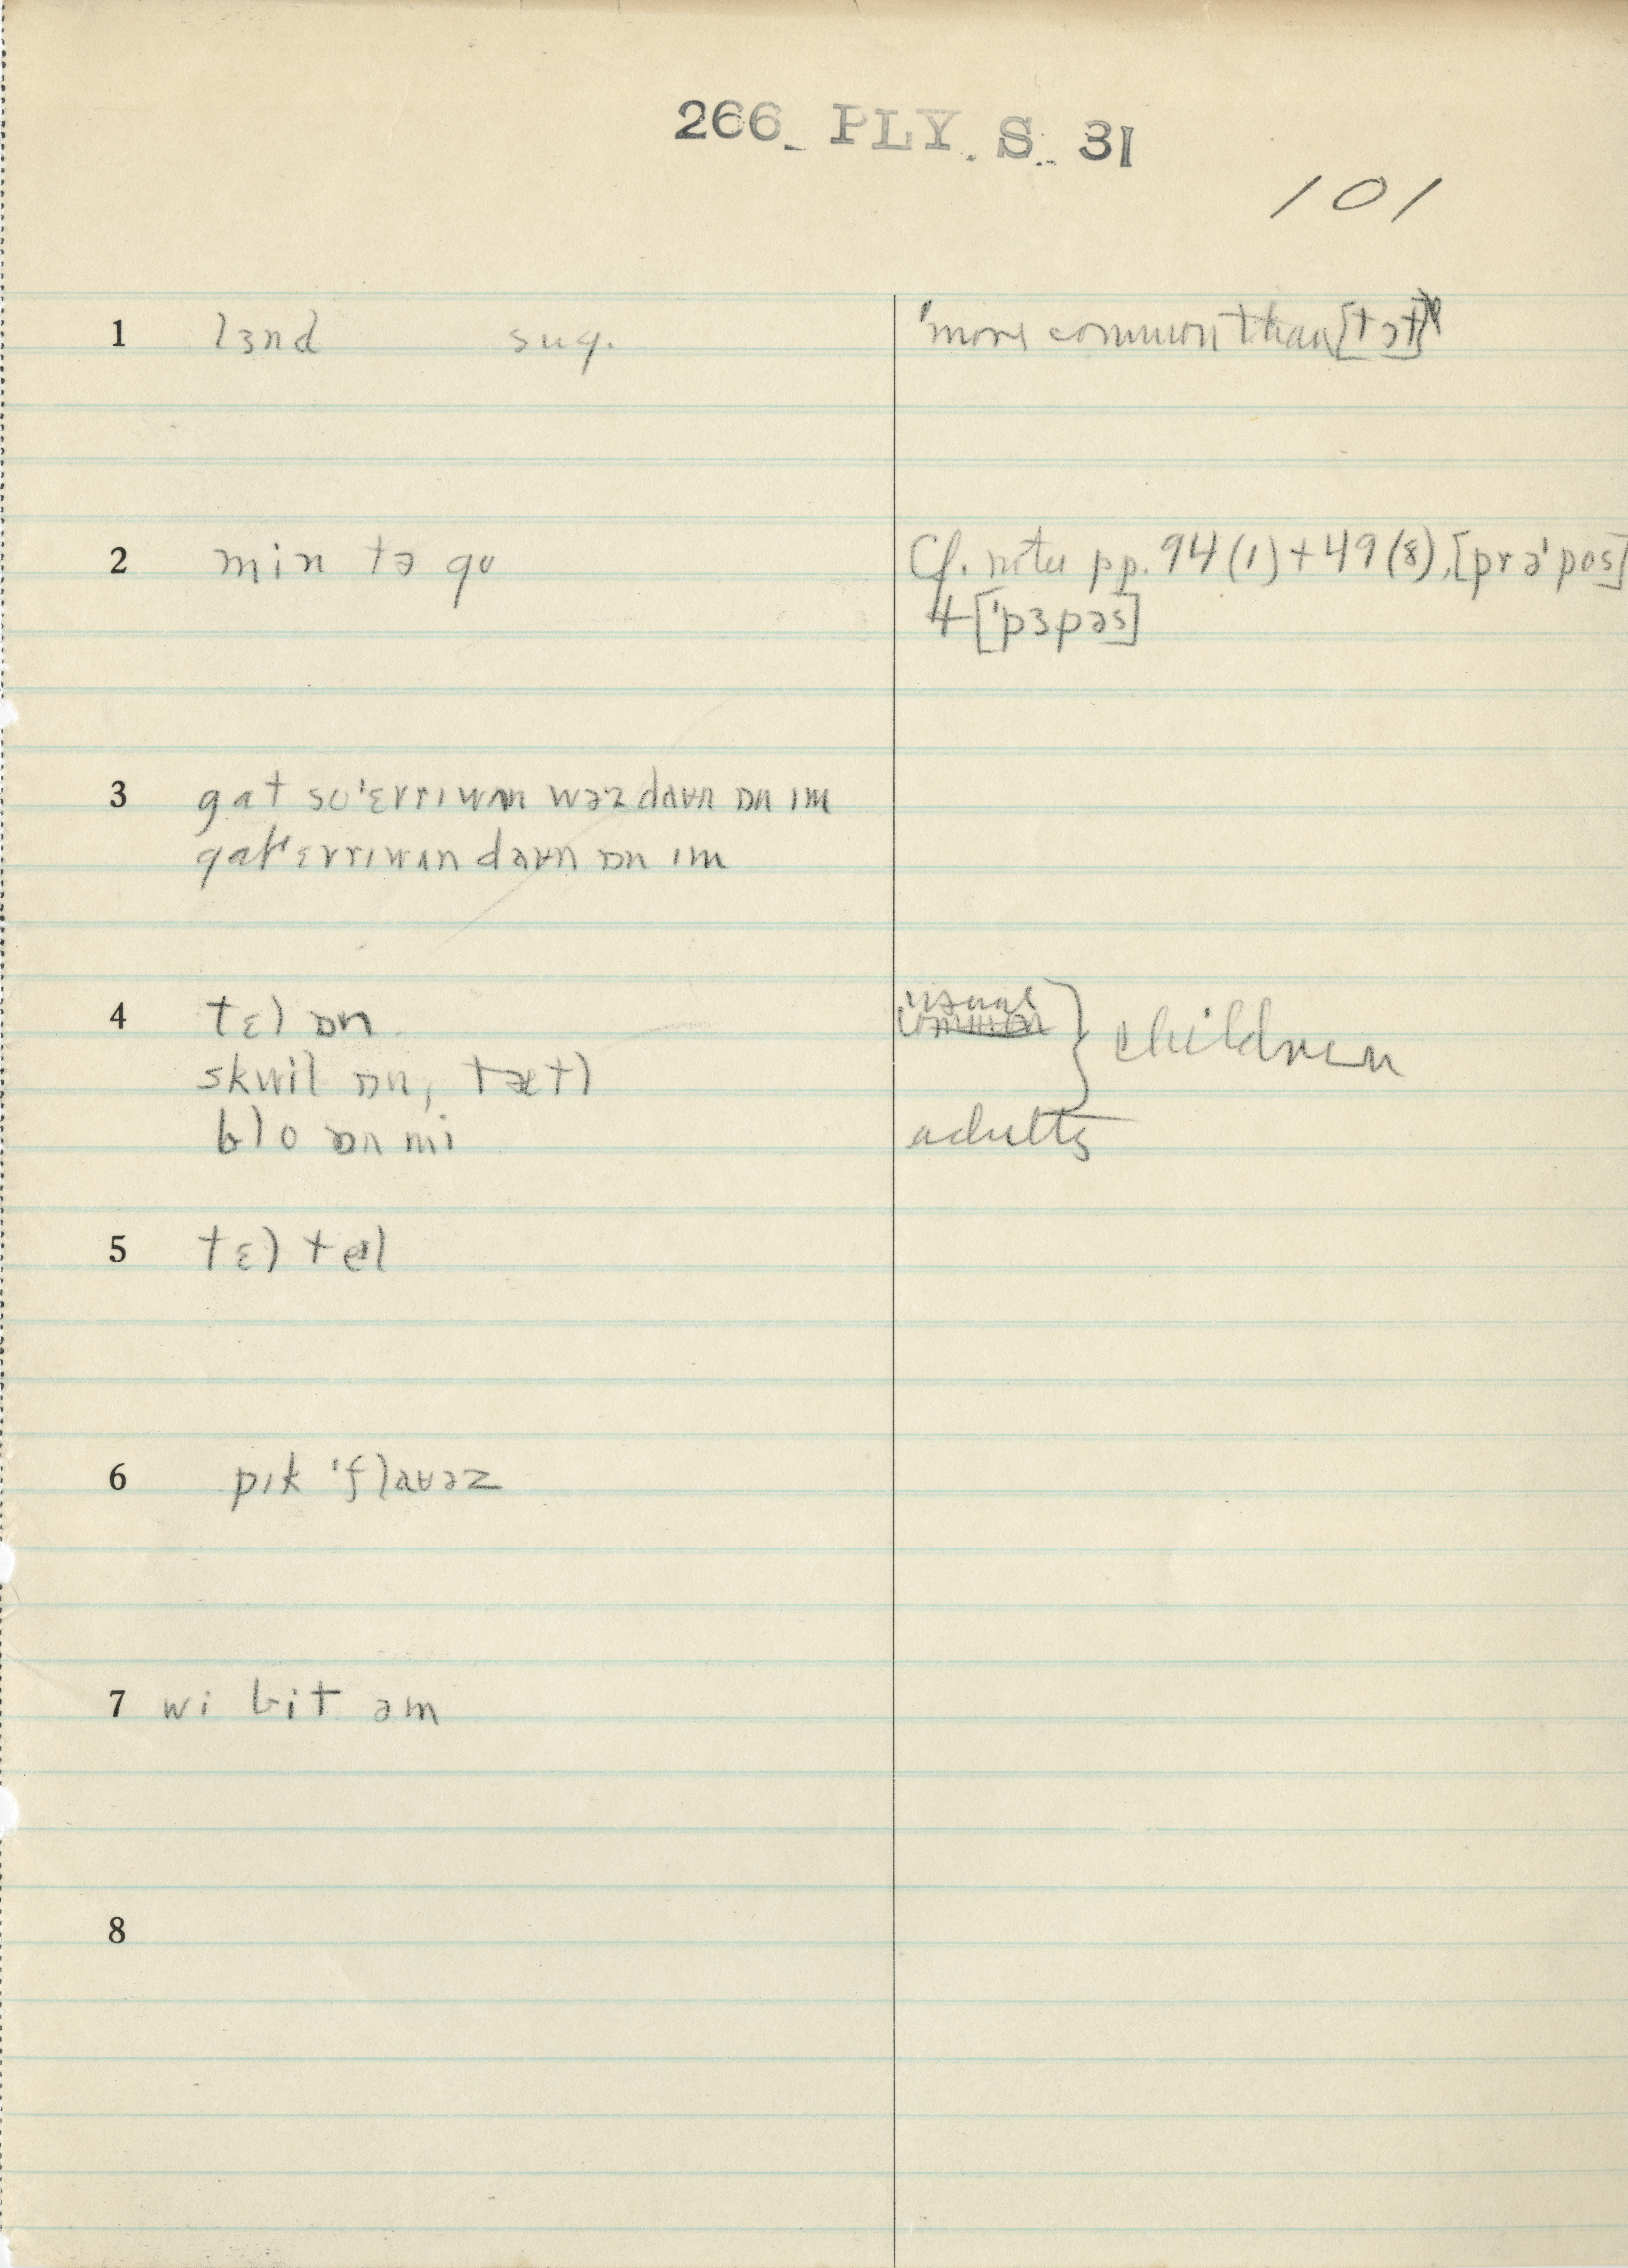 266 PLY. S. 31
101
1 lɜnd sug. "more common than [tɔt]"
2 min tə go Cf. notes pp. 94 (1) + 49 (8), [prə'pos]
+ ['pɜpəs]
3 gat so'ɛvrɪwʌn wəz daʊn ɒn ɪm
gat'ɛvrɪwʌn daʊn ɒn ɪm
4 tɛl ɒn usual common } children
skwil ɒn, tætl
blo ɒn mi adults
5 tɛl tel
6 pɪk 'flaʊəz
7 wi bit əm
8